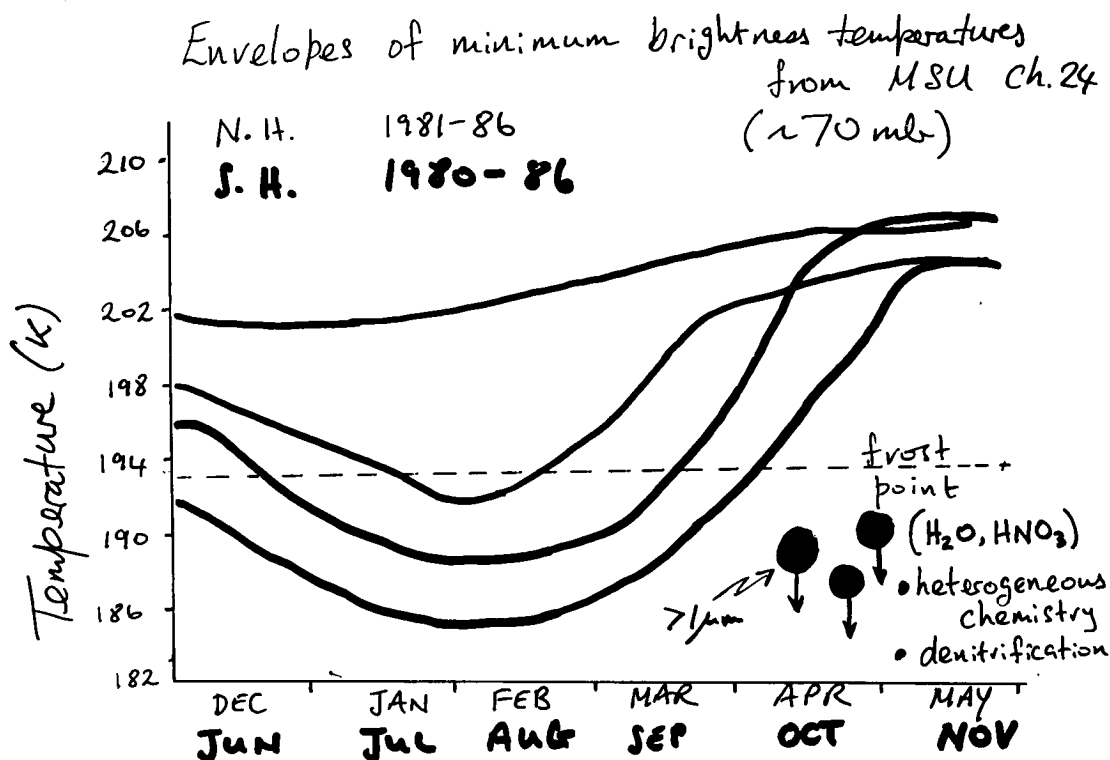 Envelopes of minimum brightness temperatures
from MSU Ch. 24
(~70 mb)
N.H. 1981-86
S.H. 1980-86
Temperature (K)
210
206
202
198
194
190
186
182
frost
point
(H₂O, HNO₃)
• heterogeneous
chemistry
• denitrification
>1μm
DEC JAN FEB MAR APR MAY
JUN JUL AUG SEP OCT NOV